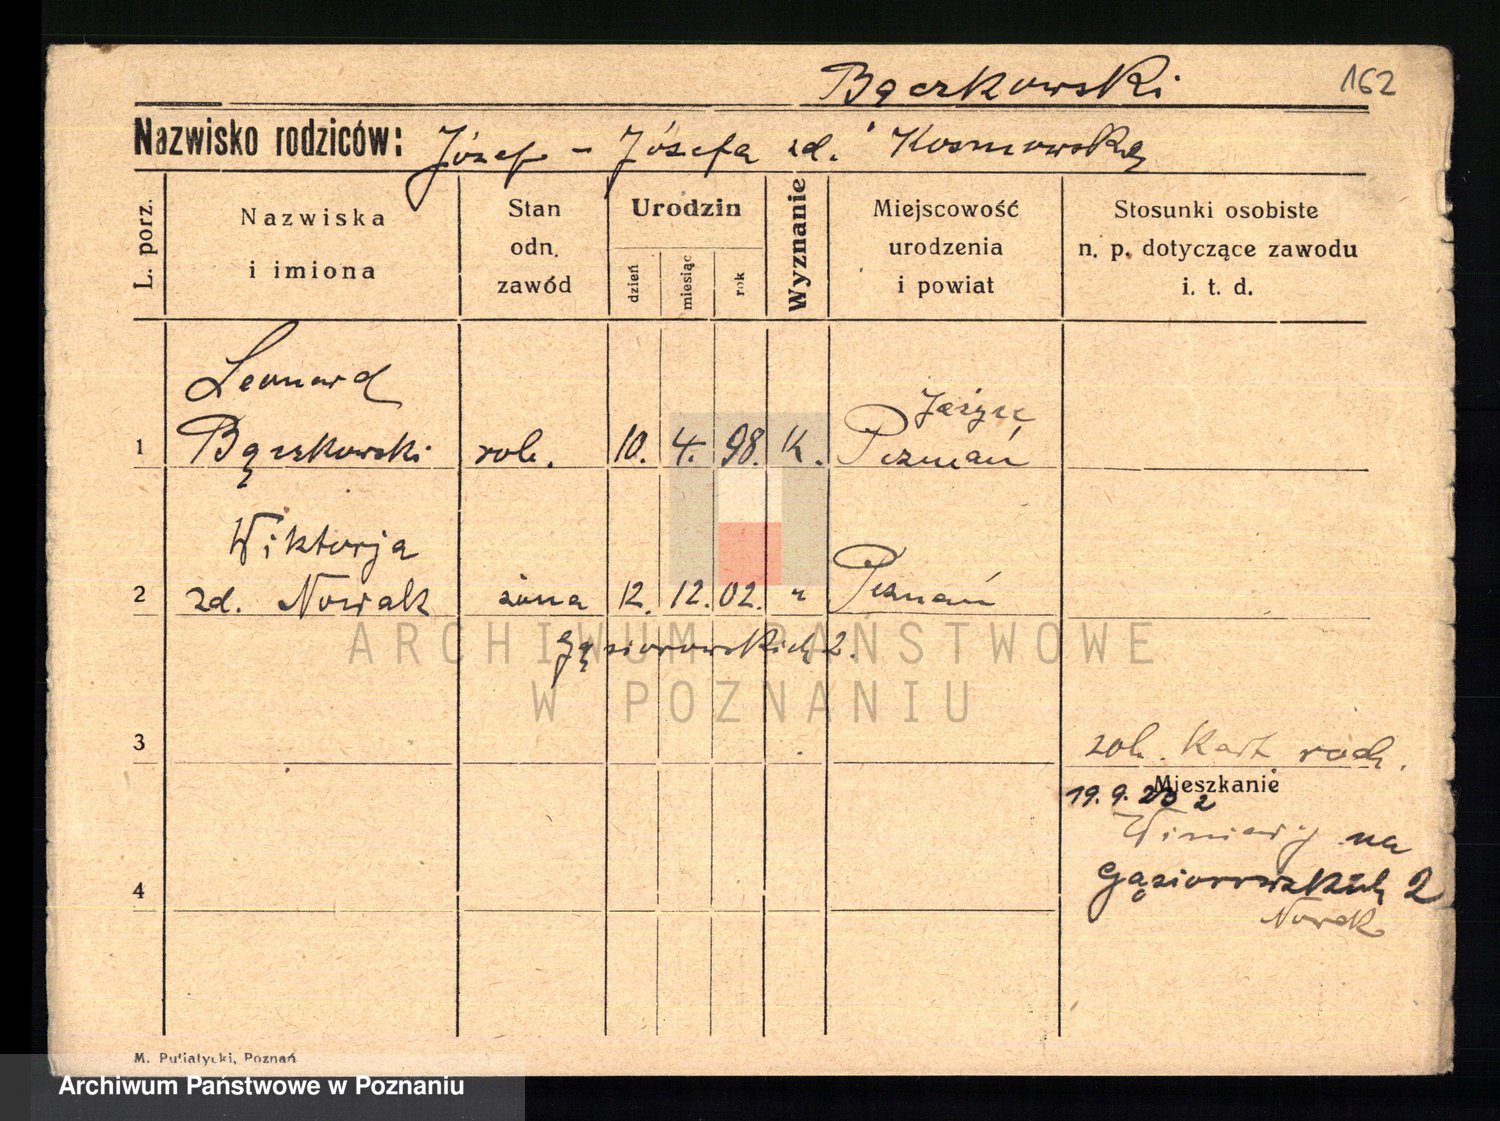 Bączkowski
162
Nazwisko rodziców: Józef - Józefa zd. Kosmowska
L. porz.
Nazwiska
i imiona
Stan
odn.
zawód
Urodzin
dzień
miesiąc
rok
Wyznanie
Miejscowość
urodzenia
i powiat
Stosunki osobiste
n. p. dotyczące zawodu
i. t. d.
Leonard
Jeżyce
1 Bączkowski rob. 10. 4. 98. K. Poznań
Wiktorja
2 zd. Nowak żona 12. 12. 02. " Poznań
Gąsiorowskich 2.
ARCHIWUM PAŃSTWOWE
W POZNANIU
3
zob. Kart rodz.
Mieszkanie
19. 9. 2
Winiary na
4
Gąsiorowskich 2
Nowak
M. Putiatycki, Poznań
Archiwum Państwowe w Poznaniu